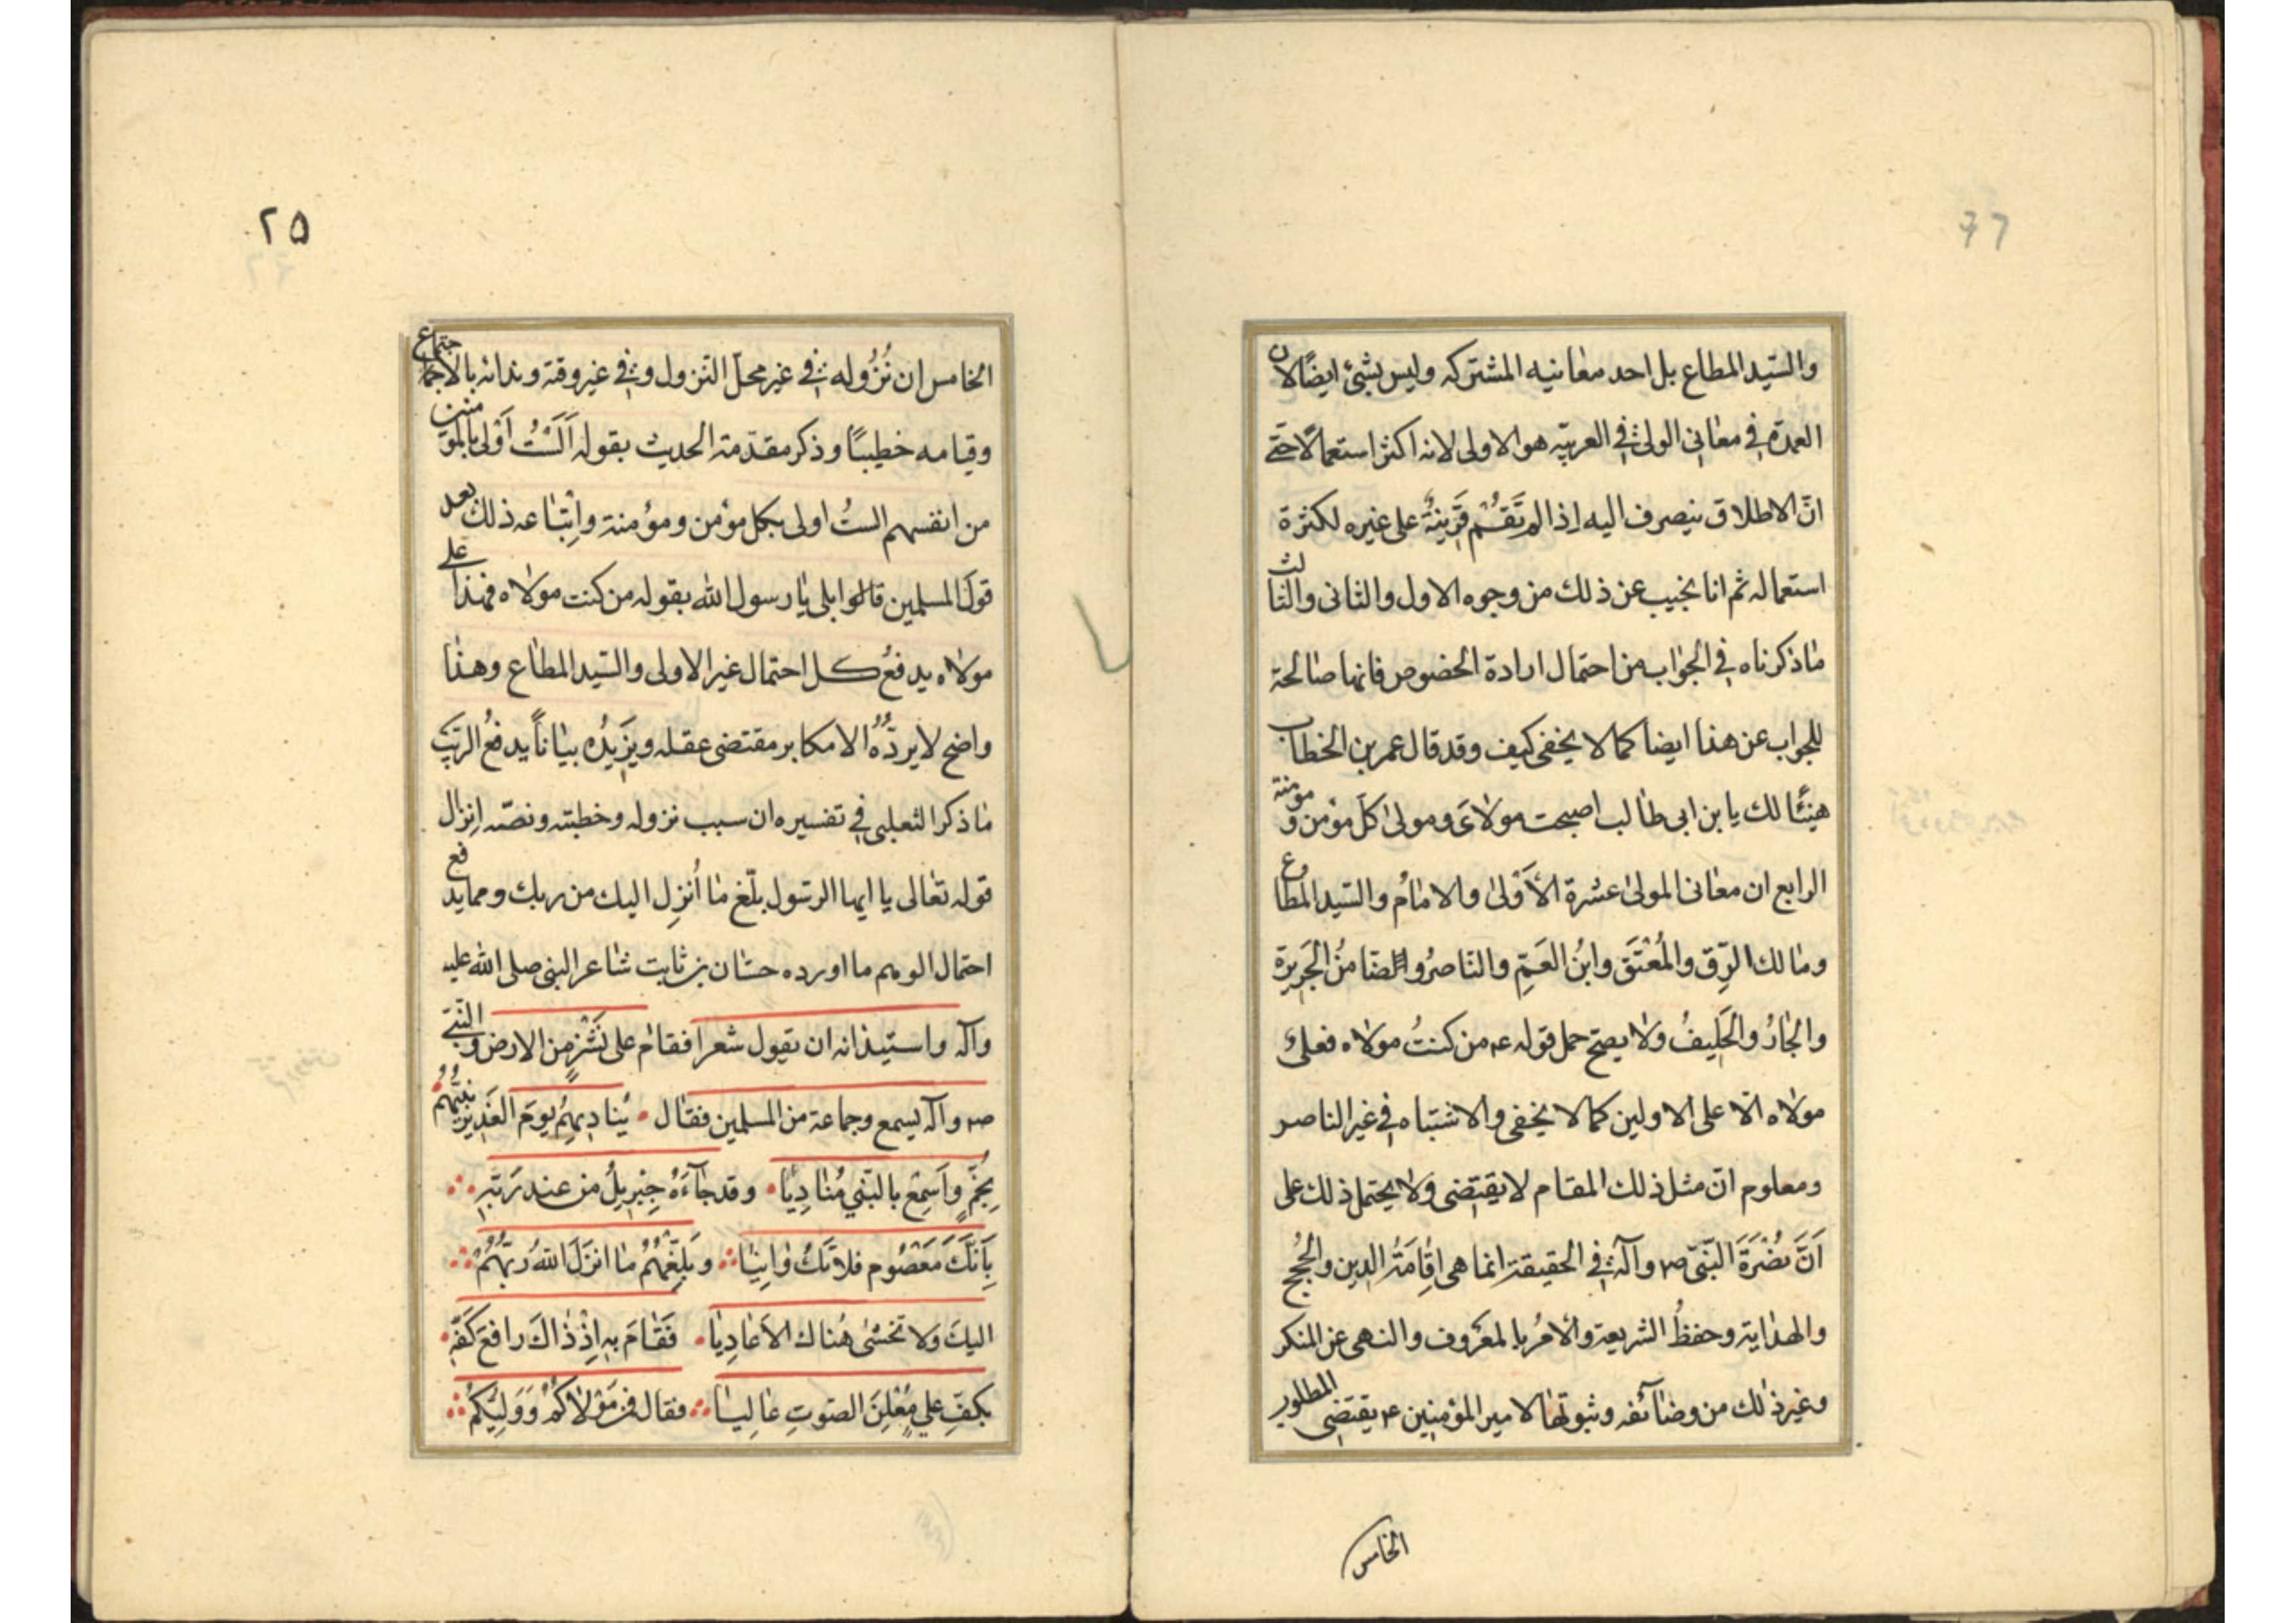 والسّيد المطاع بل احد معانيه المشتركه وليس بشئ ايضًا لان
العمدة في معانى الولى فى العربيّه هو الاولى لانه اكثر استعمالًا حتّى
انّ الاطلاق ينصرف اليه اذا لم تَقُم قَرِينَةٌ على غيره لكثرة
استعماله ثم انا نجيب عن ذلك من وجوه الاول والثانى والثالث
ماذكرناه فى الجواب من احتمال ارادة الخصوص فانها صالحة
للجواب عن هذا ايضا كما لا يخفى كيف وقد قال عمر بن الخطاب
هنيئًا لك يا بن ابى طالب اصبحت مولاىَ ومولى كلّ مؤمن و مؤمنة
الرابع ان معانى المولى عشرة الأَوْلىٰ والامامُ والسّيد المطاع
ومالك الرِّق والمُعْتَق وابنُ العَمِّ والنّاصرُ والضّامنُ الجَرِيرَة
والجَارُ والحَلِيفُ ولا يصحّ حمل قوله ع من كنتُ مولاه فعلىٌ
مولاه الّا على الاولين كما لا يخفى والاشتباه فى غير الناصر
ومعلوم انّ مثل ذلك المقام لا يقتضى ولا يحتمل ذلك على
اَنَّ نُصْرَةَ النّبىّ ص وآله فى الحقيقة انما هى اقَامَةُ الدين والحُجج
والهداية وحفظُ الشريعة والأمرُ بالمعَروف والنهى عن المنكر
وغير ذلك من وضائفه وثبوتها لامير المؤمنين ع يقتضى المطلوب
الخامس
٢٥
الخامس ان نُزُوله فى غير محلّ النزول وفى غير وقته وندائه بالاجتماع
وقيامه خطيبًا وذكر مقدّمة الحديث بقوله اَلَسْتُ اَوْلى بالمؤمنين
من انفسهم الستُ اولى بكل مؤمن ومؤمنة واِتْبَاعه ذلك بعد
قول المسلمين قالوا بلى يا رسول الله بقوله من كنت مولاه فهذا على
مولاه يدفعُ كل احتمال غير الاولى والسّيد المطاع وهذا
واضح لا يردُّهُ الا مكابر مقتضى عقله ويزِيدُه بيَاناً يدفعُ الرّيَب
ما ذكر الثعلبى فى تفسيره ان سبب نزوله وخطبته ونصّه اِنزال
قوله تعالى يا ايها الرسّول بلّغ ما اُنزِل اليك من ربك ومما يدفع
احتمال الوهم ما اورده حسّان بن ثابت شاعر النبى صلى الله عليه
وآله واستيذانه ان يقول شعرا فقام على نَشْزٍ من الارض والنّبىّ
ص وآله يسمع وجماعة من المسلمين فقال • يُنادِيهِمُ يومَ الغَدِيرِ نبيُّهُم
بِخُمٍّ وَاَسمِع بالنّبىِّ مُنادِيًا • وقد جاءَهُ جِبْرِيلُ من عند رَبّهِ
بِاَنّكَ مَعْصُوم فلا تَكُ وَانِيًا وبَلِّغْهُمُ ما انزَلَ اللهُ ربُّهُمُ
اليكَ ولا تخشىٰ هُناك الاَعَادِيَا • فَقامَ به اِذْ ذاكَ رافعَ كَفّهِ •
بكفِّ علىٍ مُعْلِنَ الصّوتِ عَالِيًا فقال فمن مَوْلاكُمُ وَوَلِيُّكُم